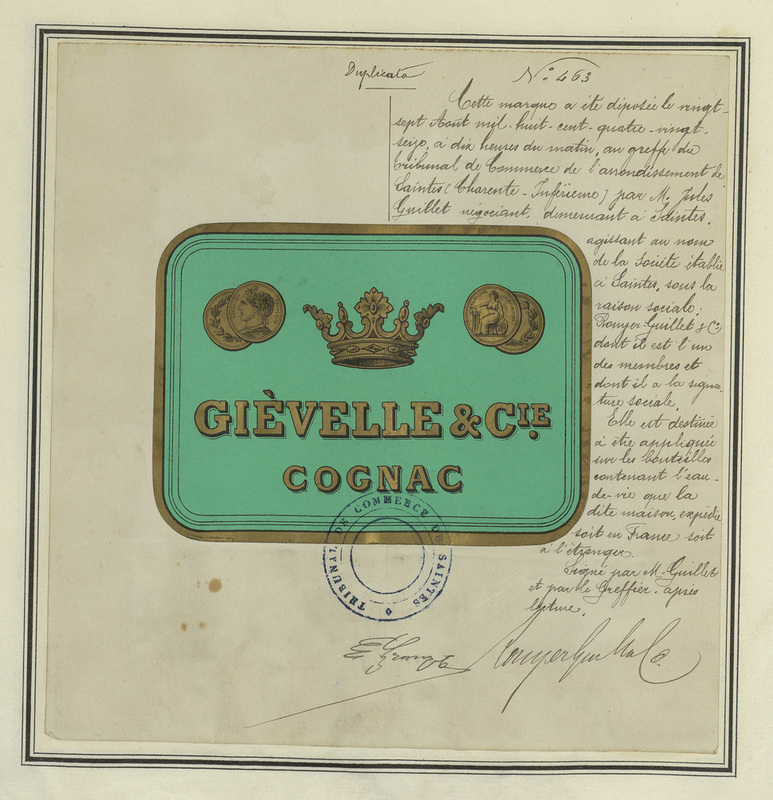 Duplicata
N° 463
Cette marque a été déposée le vingt-
sept Aout mil-huit-cent-quatre-vingt-
seize, à dix heures du matin, au greffe du
tribunal de Commerce de l'arrondissement de
Saintes (Charente-Inférieure) par M. Jules
Guillet négociant, demeurant à Saintes,
agissant au nom
de la Société établie
à Saintes, sous la
raison sociale:
Rouyer-Guillet & Cie
dont il est l'un
des membres et
dont il a la signa-
ture sociale.
Elle est destinée
à être appliquée
sur les bouteilles
contenant l'eau-
de-vie que la
dite maison, expédie
soit en France soit
à l'étranger.
Signé par M. Guillet
et par le Greffier. après
lecture.
GIÈVELLE & CIE
COGNAC
TRIBUNAL DE COMMERCE DE SAINTES
Rouyer Guillet & Co.